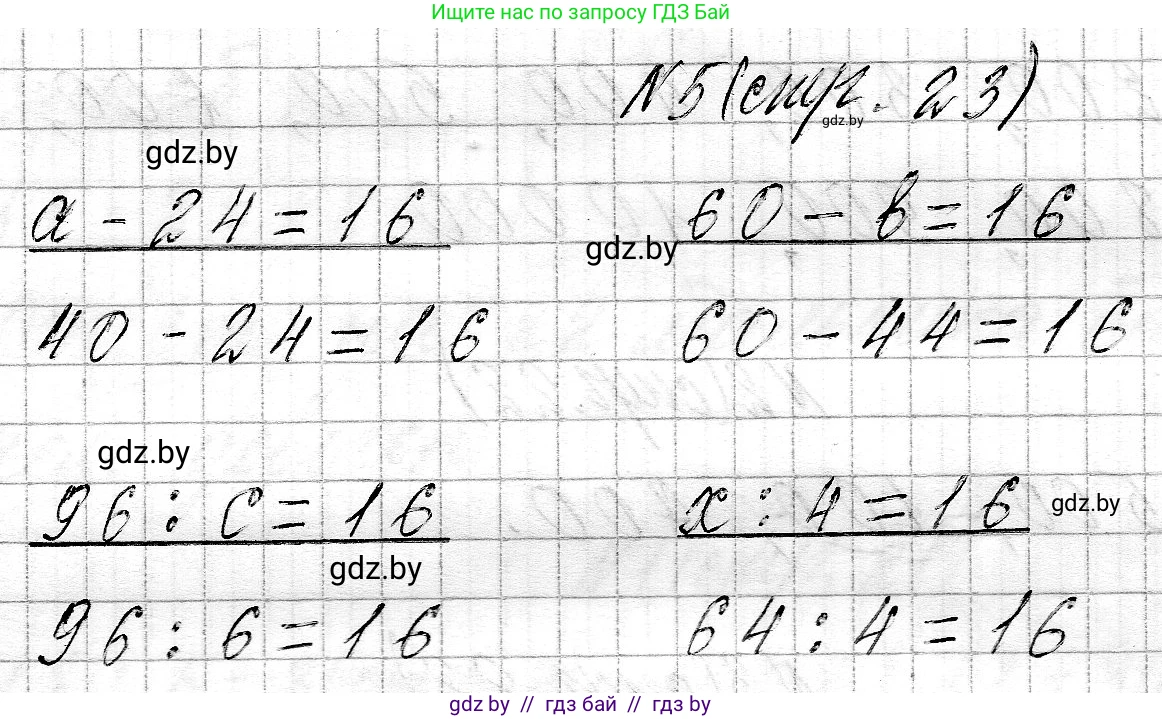 Ищите нас по запросу ГДЗ Бай
N5(стр. 23)
gdz.by
gdz.by
a - 24 = 16 60 - b = 16
gdz.by
40 - 24 = 16 60 - 44 = 16
gdz.by
96 : c = 16 x : 4 = 16 gdz.by
gdz.by
96 : 6 = 16 64 : 4 = 16
gdz.by // гдз бай // гдз by